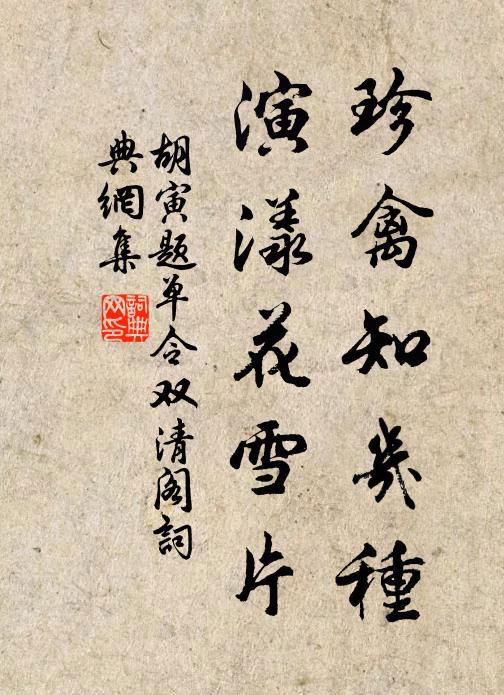 珍禽知幾種
演漾花雪片
胡寅题单令双清阁詞
典網集
詞典
网印